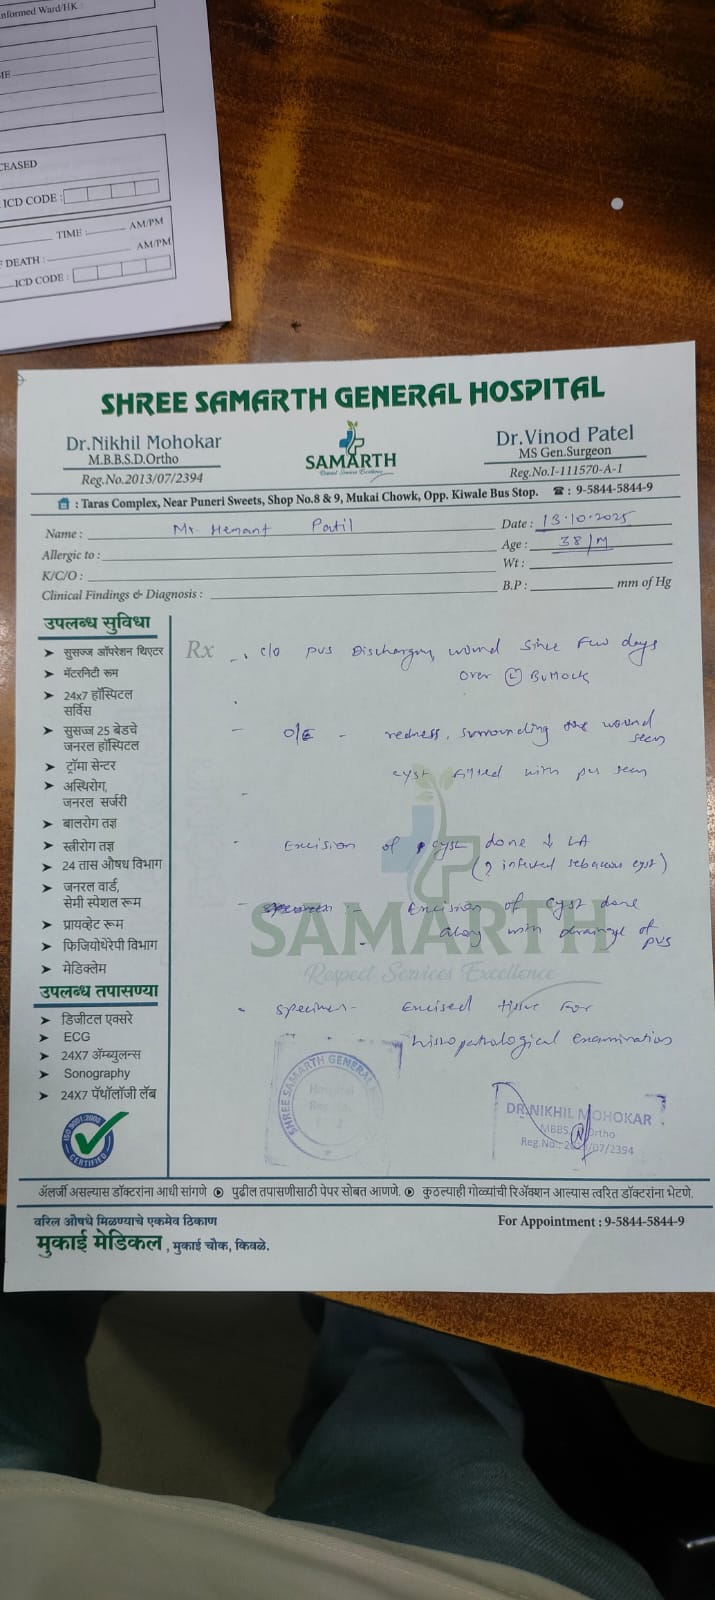 Informed Ward/HK :
ME
CEASED
ICD CODE :
TIME : AM/PM
F DEATH : AM/PM
ICD CODE :
SHREE SAMARTH GENERAL HOSPITAL
Dr.Nikhil Mohokar
M.B.B.S.D.Ortho
Reg.No.2013/07/2394
SAMARTH
Respect Services Excellence
Dr.Vinod Patel
MS Gen.Surgeon
Reg.No.I-111570-A-1
: Taras Complex, Near Puneri Sweets, Shop No.8 & 9, Mukai Chowk, Opp. Kiwale Bus Stop. ☎ : 9-5844-5844-9
Name : Mr. Hemant Patil
Date : 13.10.2025
Allergic to :
Age : 38/M
K/C/O :
Wt :
Clinical Findings & Diagnosis :
B.P : mm of Hg
उपलब्ध सुविधा
➤ सुसज्ज ऑपरेशन थिएटर
➤ मॅटरनिटी रूम
➤ 24x7 हॉस्पिटल
सर्विस
➤ सुसज्ज 25 बेडचे
जनरल हॉस्पिटल
➤ ट्रॉमा सेन्टर
➤ अस्थिरोग,
जनरल सर्जरी
➤ बालरोग तज्ञ
➤ स्त्रीरोग तज्ञ
➤ 24 तास औषध विभाग
➤ जनरल वार्ड,
सेमी स्पेशल रूम
➤ प्रायव्हेट रूम
➤ फिजियोथेरेपी विभाग
➤ मेडिक्लेम
उपलब्ध तपासण्या
➤ डिजीटल एक्सरे
➤ ECG
➤ 24X7 ॲम्ब्युलन्स
➤ Sonography
➤ 24X7 पॅथॉलॉजी लॅब
ISO 9001:2008
CERTIFIED
Rx
- c/o pus Discharging wound since few days
over (L) Buttock
- O/E - redness, surrounding the wound
seen
- cyst filled with pus seen
- Excision of cyst done ↓ LA
(? infected sebaceous cyst)
- :- Excision of cyst done
along with drainage of
pus
SAMARTH
Respect Services Excellence
- specimen - Excised tissue for
histopathological examination
SHREE SAMARTH GENERAL
DR.NIKHIL MOHOKAR
MBBS Ortho
Reg.No. 2013/07/2394
ॲलर्जी असल्यास डॉक्टरांना आधी सांगणे ⦿ पुढील तपासणीसाठी पेपर सोबत आणणे. ⦿ कुठल्याही गोळ्यांची रिॲक्शन आल्यास त्वरित डॉक्टरांना भेटणे.
वरिल औषधे मिळण्याचे एकमेव ठिकाण
मुकाई मेडिकल , मुकाई चौक, किवळे.
For Appointment : 9-5844-5844-9